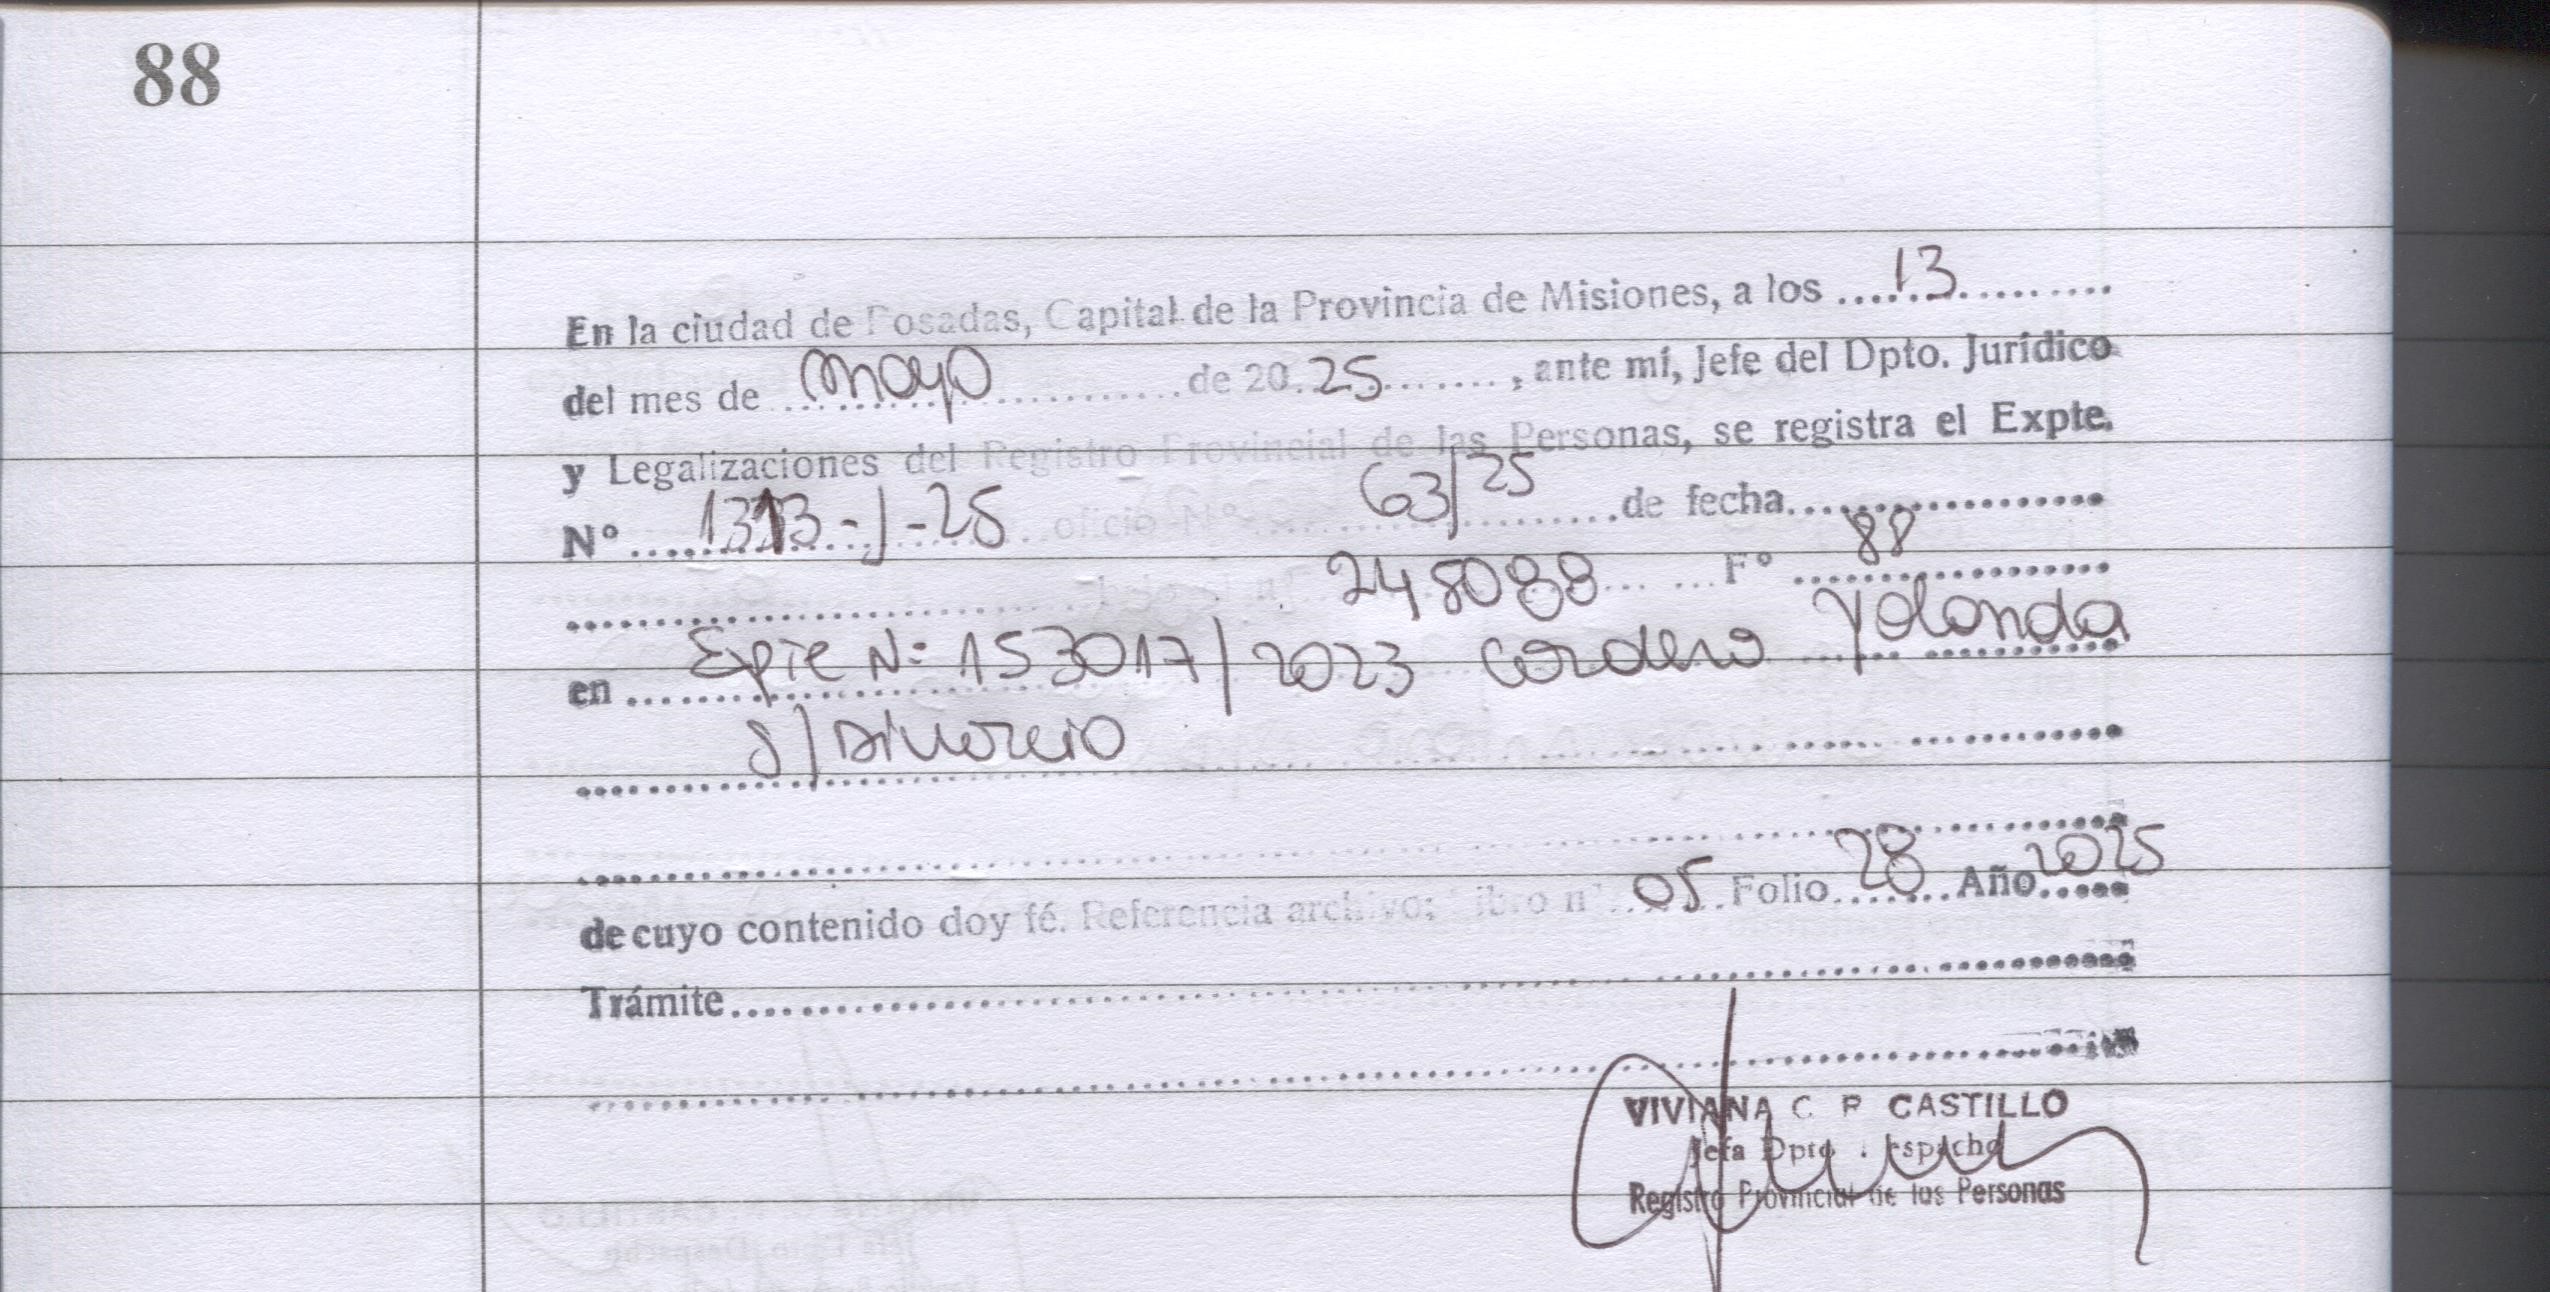 88
En la ciudad de Posadas, Capital de la Provincia de Misiones, a los ......13..........
del mes de ....mayo............de 20.25......., ante mí, Jefe del Dpto. Jurídico
y Legalizaciones del Registro Provincial de las Personas, se registra el Expte.
N° ....1313-J-25....oficio N°....63/25....de fecha....................
....................248088.......F° ....88............
en ....Expte N: 153017/2023 Cordero Yolanda
S/Divorcio
de cuyo contenido doy fé. Referencia archivo: Libro n° ...05..Folio...28...Año 2025
Trámite....................
VIVIANA C. R. CASTILLO
Jefa Dpto. Despacho
Registro Provincial de las Personas